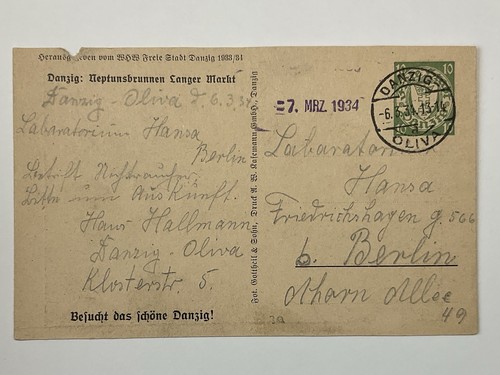 Herausgegeben vom WHW Freie Stadt Danzig 1933/34
Danzig: Neptunsbrunnen Langer Markt
Danzig - Oliva d. 6.3.34
Laboratorium Hansa
Berlin
Betrifft Nichtraucher.
Bitte um Auskunft.
Hans Hallmann
Danzig - Oliva
Klosterstr. 5.
Besucht das schöne Danzig!
Fot. Gottheil & Sohn, Druck A. W. Kafemann GmbH., Danzig
7. MRZ. 1934
10
10
DANZIG
-6.3.34.13-14
OLIVA
Laborator.
Hansa
Friedrichshagen g. 566
b. Berlin
Ahorn Allee
49